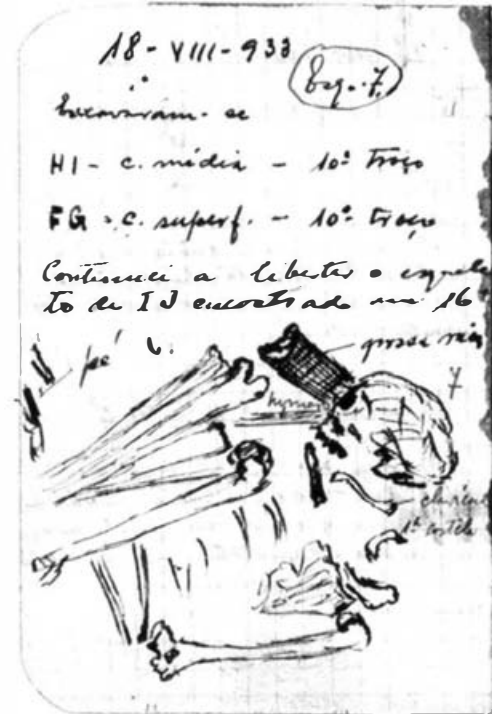 18 - VIII - 933
Esq. 7
Escavaram-se
HI - c. média - 10º troço
FG - c. superf. - 10º troço
Continuei a libertar o esquele
to de IJ encontrado em 16
pé
7
1ª costela